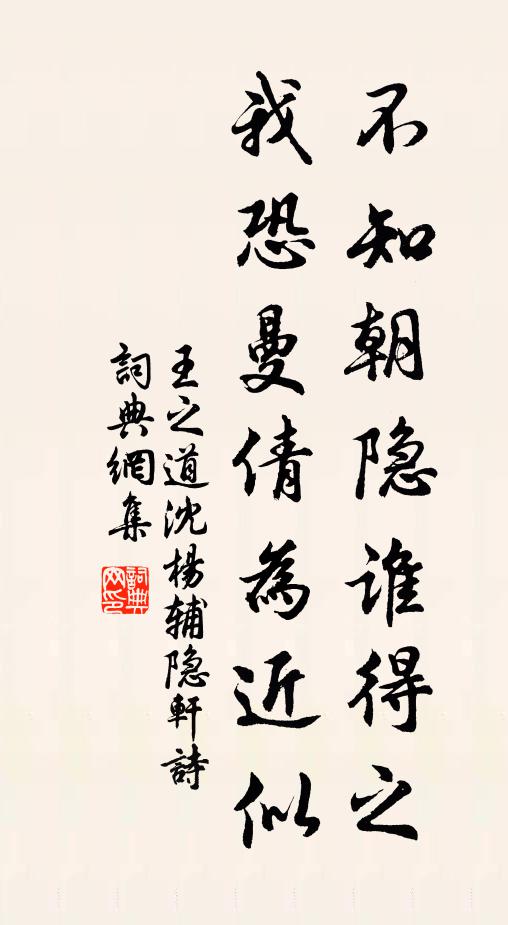 不知朝隐谁得之
我恐曼倩為近似
王之道沈楊辅隐軒詩
詞典網集
詞典網印